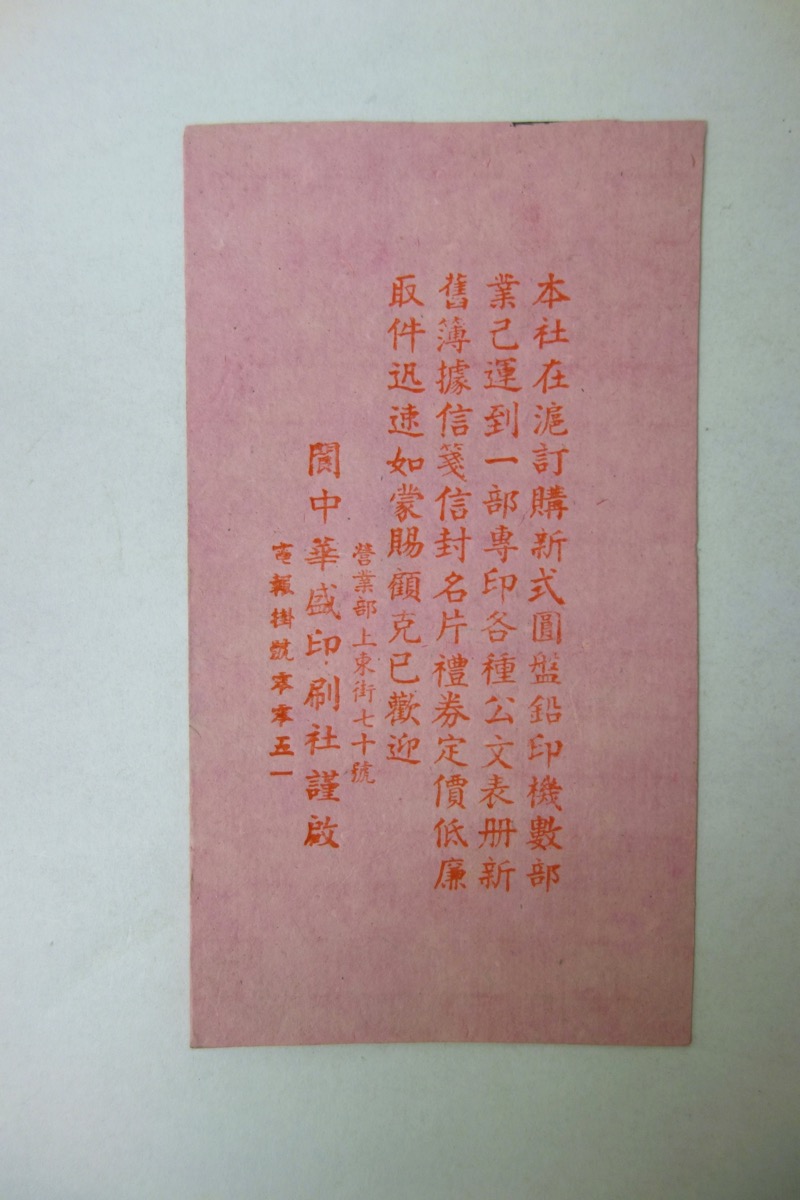 本社在滬訂購新式圓盤鉛印機數部
業己運到一部專印各種公文表册新
舊簿據信箋信封名片禮券定價低廉
取件迅速如蒙賜顧克已歡迎
營業部上東街七十號
閬中華盛印刷社謹啟
電報掛號零零五一